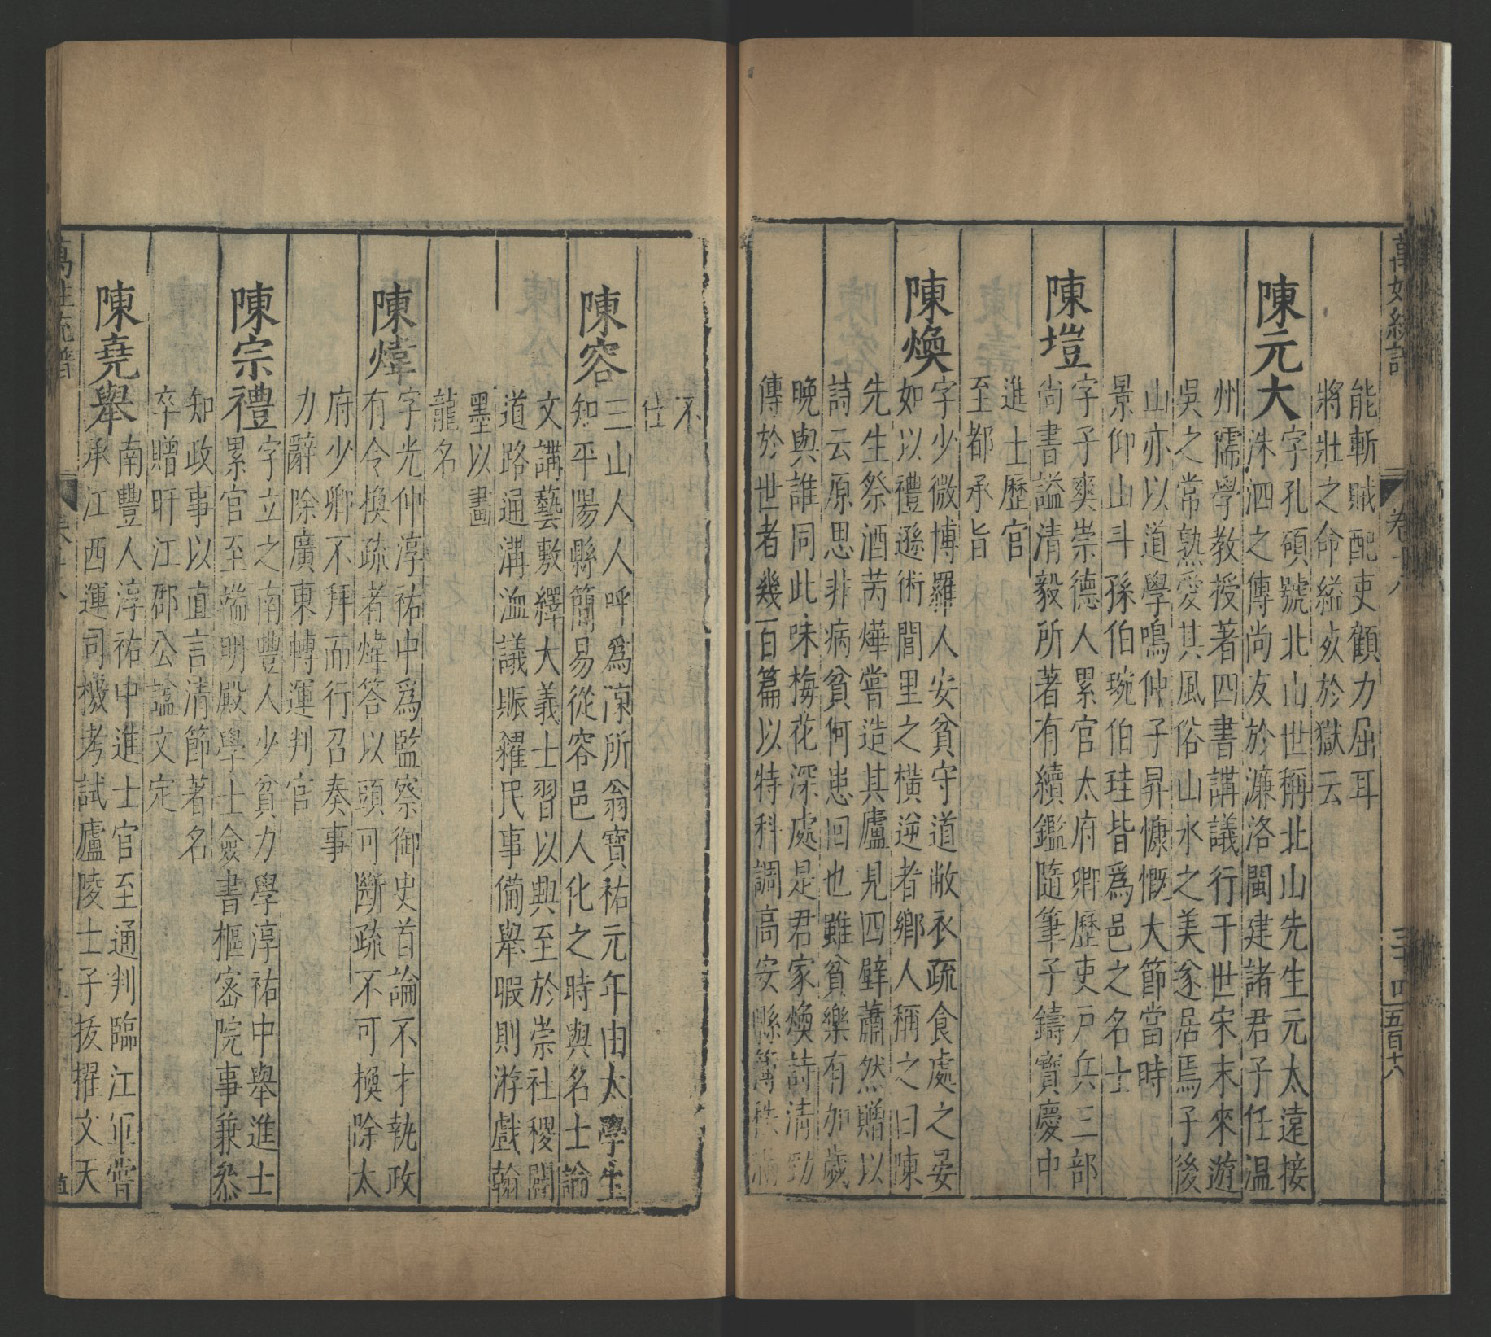 萬姓統譜
卷十八
三十四
五百六
能斬賊配吏顧力屈耳
將壯之命縊妏於獄云
陳元大
字孔碩號北山世稱北山先生元太遠接
洙泗之傳尚友於濂洛閩建諸君子任溫
州儒學教授著四書講議行于世宋末來遊
吳之常熟愛其風俗山水之美遂居焉子後
山亦以道學鳴仲子昇慷慨大節當時
景仰山斗孫伯琬伯珪皆爲邑之名士
陳塏
字子爽崇德人累官太府卿歷吏戶兵三部
尚書謚清毅所著有續鑑隨筆子鑄寶慶中
進士歷官
至都承旨
陳煥
字少微博羅人安貧守道敝衣疏食處之晏
如以禮遜術閭里之橫逆者鄉人稱之曰陳
先生祭酒芮燁嘗造其廬見四壁蕭然贈以
詩云原思非病貧何患回也雖貧樂有加歲
晚與誰同此味梅花深處是君家煥詩清勁
傳於世者幾百篇以特科調高安縣簿秩滿
不
仕
陳容
三山人人呼爲涼所翁寶祐元年由太學生
知平陽縣簡易從容邑人化之時與名士論
文講藝敷繹大義士習以興至於崇社稷闢
道路通溝洫議賑糴民事備舉暇則游戲翰
墨以畫
龍名
陳煒
字光仲淳祐中爲監察御史首論不才執政
有令換疏者煒答以頭可斷疏不可換除太
府少卿不拜而行召奏事
力辭除廣東轉運判官
陳宗禮
字立之南豐人少貧力學淳祐中舉進士
累官至端明殿學士僉書樞密院事兼叅
知政事以直言清節著名
卒贈旴江郡公謚文定
陳堯舉
南豐人淳祐中進士官至通判臨江軍嘗
承江西運司檄考試廬陵士子拔擢文天
萬姓統譜
卷十八